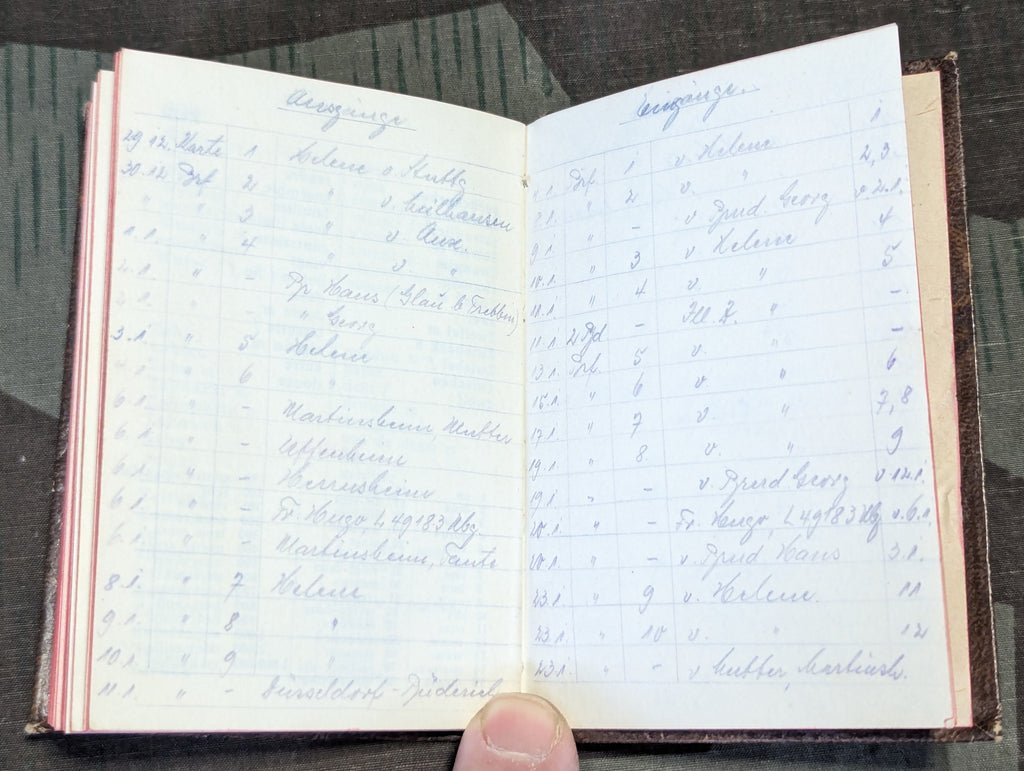 Ausgänge
29.12. Karte 1 Helene v. Stuttg.
30.12. Brf. 2 " v.
" " 3 " v. Aux.
1.1. " 4 " v. "
" - Br. Hans (Glau b. Trebbin)
- " Georg
3.1. " 5 Helene
" 6 "
6.1. " - Martinsheim, Mutter
6.1. " - Uffenheim
6.1. " - Herrnsheim
6.1. " - Fr. Hugo, L 49183 Nbg.
6.1. " - Martinsheim, Tante
8.1. " 7 Helene
9.1. " 8 "
10.1. " 9 "
11.1. " - Düsseldorf-Büderich
Eingänge.
Brf. 1 v. Helene 1
" 2 v. " 2,3
9.1. " - v. Brud. Georg v. 2.1.
10.1. " 3 v. Helene 4
" 4 v. " 5
11.1. 2 - " -
13.1. Brf. 5 v. " -
15.1. " 6 v. " 6
17.1. " 7 v. " 7,8
19.1. " 8 v. " 9
19.1. " - v. Brud. Georg v. 12.1.
20.1. " - Fr. Hugo, L 49183 Nbg. v. 6.1.
" - v. Brud. Hans 3.1.
23.1. " 9 v. Helene. 11
23.1. " 10 v. " 12
23.1. " - v. Mutter, Martinsh.